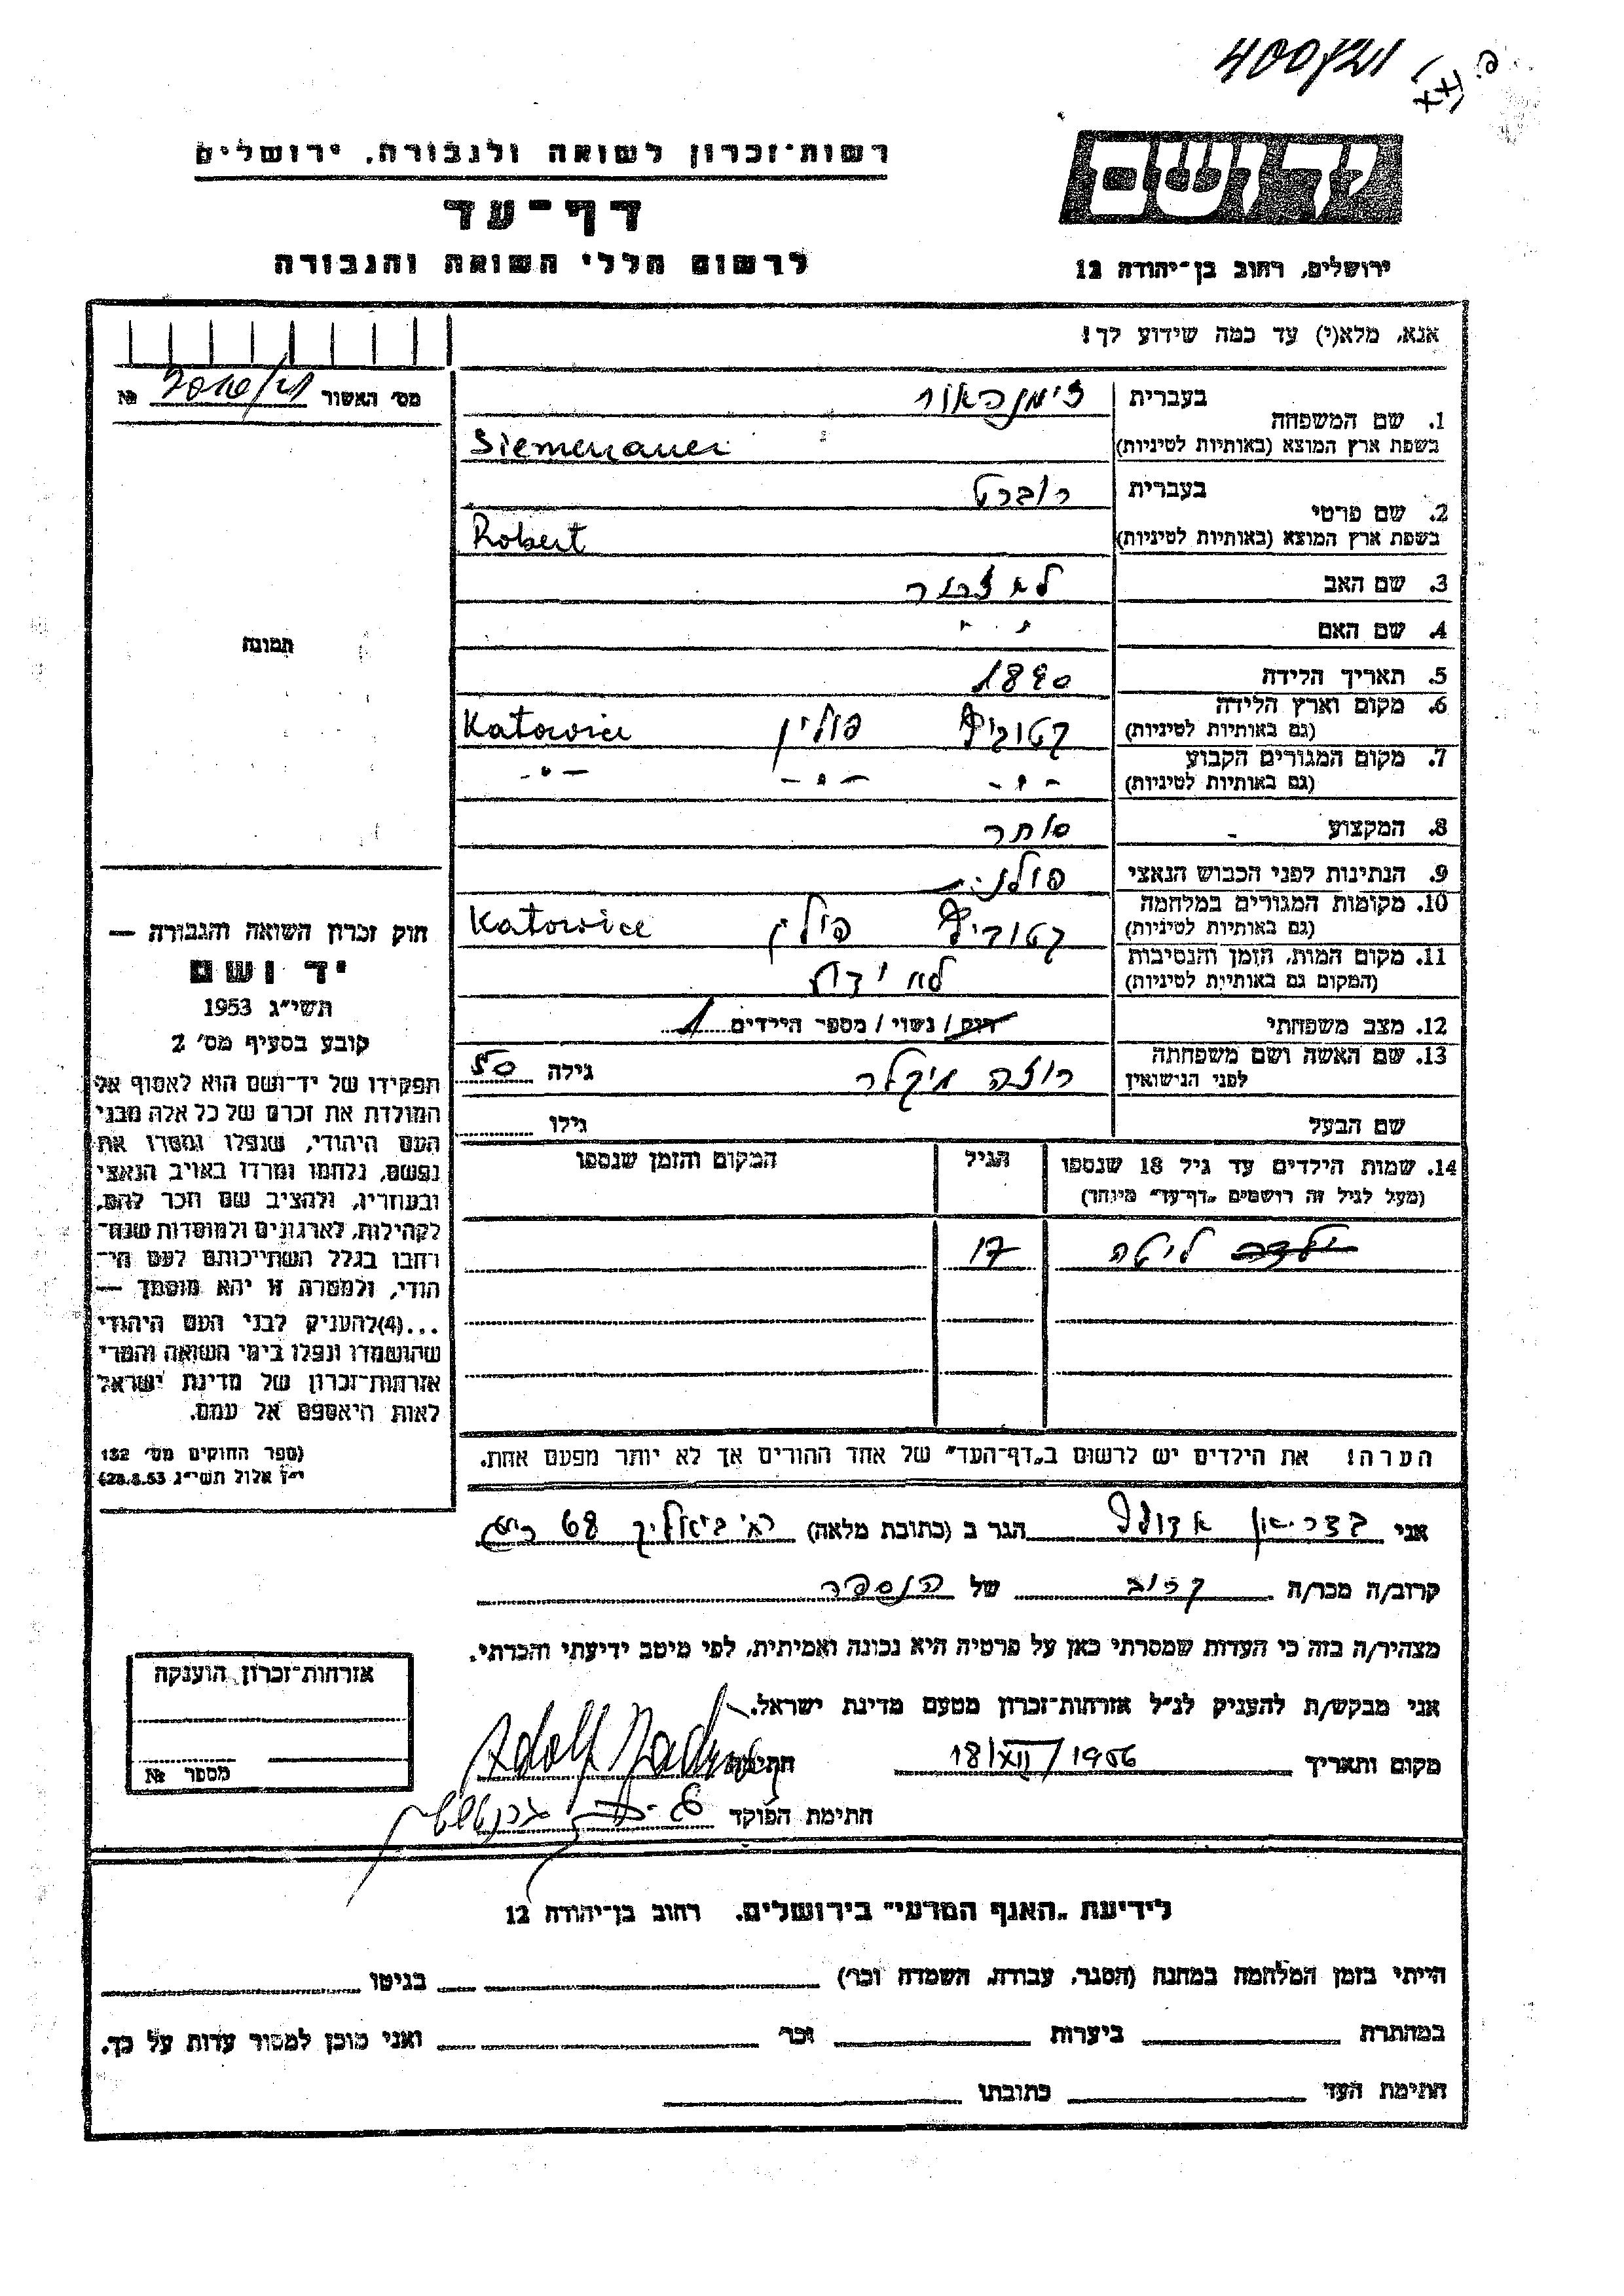 400/21
רשות־זכרון לשואה ולגבורה. ירושלים
דף־עד
לרשום חללי השואה והגבורה
ידושם
ירושלים, רחוב בן־יהודה 12
אנא, מלא(י) עד כמה שידוע לך!
מס׳ האשור №
1. שם המשפחה
בעברית
זימנהאור
בשפת ארץ המוצא (באותיות לטיניות)
Siemenauer
2. שם פרטי
בעברית
רוברט
בשפת ארץ המוצא (באותיות לטיניות)
Robert
3. שם האב
לא זכור
4. שם האם
" "
5. תאריך הלידה
1890
6. מקום וארץ הלידה
(גם באותיות לטיניות)
קטוביץ פולין Katowice
7. מקום המגורים הקבוע
(גם באותיות לטיניות)
- " - - " - - " -
8. המקצוע
סוחר
9. הנתינות לפני הכבוש הנאצי
פולנית
10. מקומות המגורים במלחמה
(גם באותיות לטיניות)
קטוביץ פולין Katowice
11. מקום המות, הזמן והנסיבות
(המקום גם באותיות לטיניות)
לא ידוע
12. מצב משפחתי
רווק / נשוי / מספר הילדים 1
13. שם האשה ושם משפחתה
לפני הנישואין
רוזה מיקלר גילה 50
שם הבעל גילו
14. שמות הילדים עד גיל 18 שנספו
(מעל לגיל זה רושמים „דף־עד״ מיוחד)
הגיל
המקום והזמן שנספו
ליטה 17
הערה! את הילדים יש לרשום ב„דף־העד״ של אחד ההורים אך לא יותר מפעם אחת.
תמונה
חוק זכרון השואה והגבורה —
יד ושם
תשי״ג 1953
קובע בסעיף מס׳ 2
תפקידו של יד־ושם הוא לאסוף אל
המולדת את זכרם של כל אלה מבני
העם היהודי, שנפלו ומסרו את
נפשם, נלחמו ומרדו באויב הנאצי
ובעוזריו, ולהציב שם וזכר להם,
לקהילות, לארגונים ולמוסדות שנח־
רחבו בגלל השתייכותם לעם הי־
הודי, ולמטרה זו יהא מוסמך —
...(4)להעניק לבני העם היהודי
שהושמדו ונפלו בימי השואה והמרי
אזרחות־זכרון של מדינת ישראל
לאות היאספם אל עמם.
(ספר החוקים מס׳ 132
י״ז אלול תשי״ג 28.8.53)
אני אדולף הגר ב (כתובת מלאה) ביאליק 68
קרוב/ה מכר/ה קרוב של הנספה
מצהיר/ה בזה כי העדות שמסרתי כאן על פרטיה היא נכונה ואמיתית, לפי מיטב ידיעתי והכרתי.
אני מבקש/ת להעניק לנ״ל אזרחות־זכרון מטעם מדינת ישראל.
מקום ותאריך 18/XII/1956 חתימה Adolf
חתימת הפוקד
אזרחות־זכרון הוענקה
מספר №
לידיעת „האגף המדעי״ בירושלים. רחוב בן־יהודה 12
הייתי בזמן המלחמה במחנה (הסגר, עבודה, השמדה וכו׳) בגיטו
במחתרת ביערות וכו׳ ואני מוכן למסור עדות על כך.
חתימת העד כתובתו